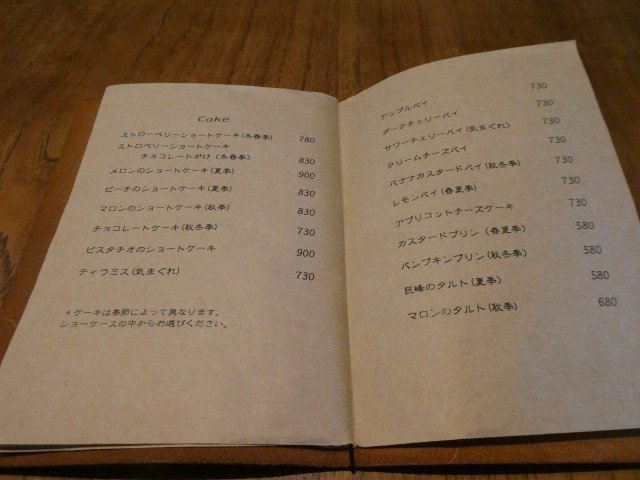 Cake
ストローベリーショートケーキ(冬春季) 780
ストロベリーショートケーキ
チョコレートがけ (冬春季) 830
メロンのショートケーキ(夏季) 900
ピーチのショートケーキ(夏季) 830
マロンのショートケーキ(秋季) 830
チョコレートケーキ(秋冬季) 730
ピスタチオのショートケーキ 900
ティラミス(気まぐれ) 730
*ケーキは季節によって異なります。
ショーケースの中からお選びください。
アップルパイ 730
ダークチェリーパイ 730
サワーチェリーパイ(気まぐれ) 730
クリームチーズパイ 730
バナナカスタードパイ(秋冬季) 730
レモンパイ(春夏季) 730
アプリコットチーズケーキ 730
カスタードプリン (春夏季) 580
パンプキンプリン(秋冬季) 580
巨峰のタルト(夏季) 580
マロンのタルト(秋季) 680